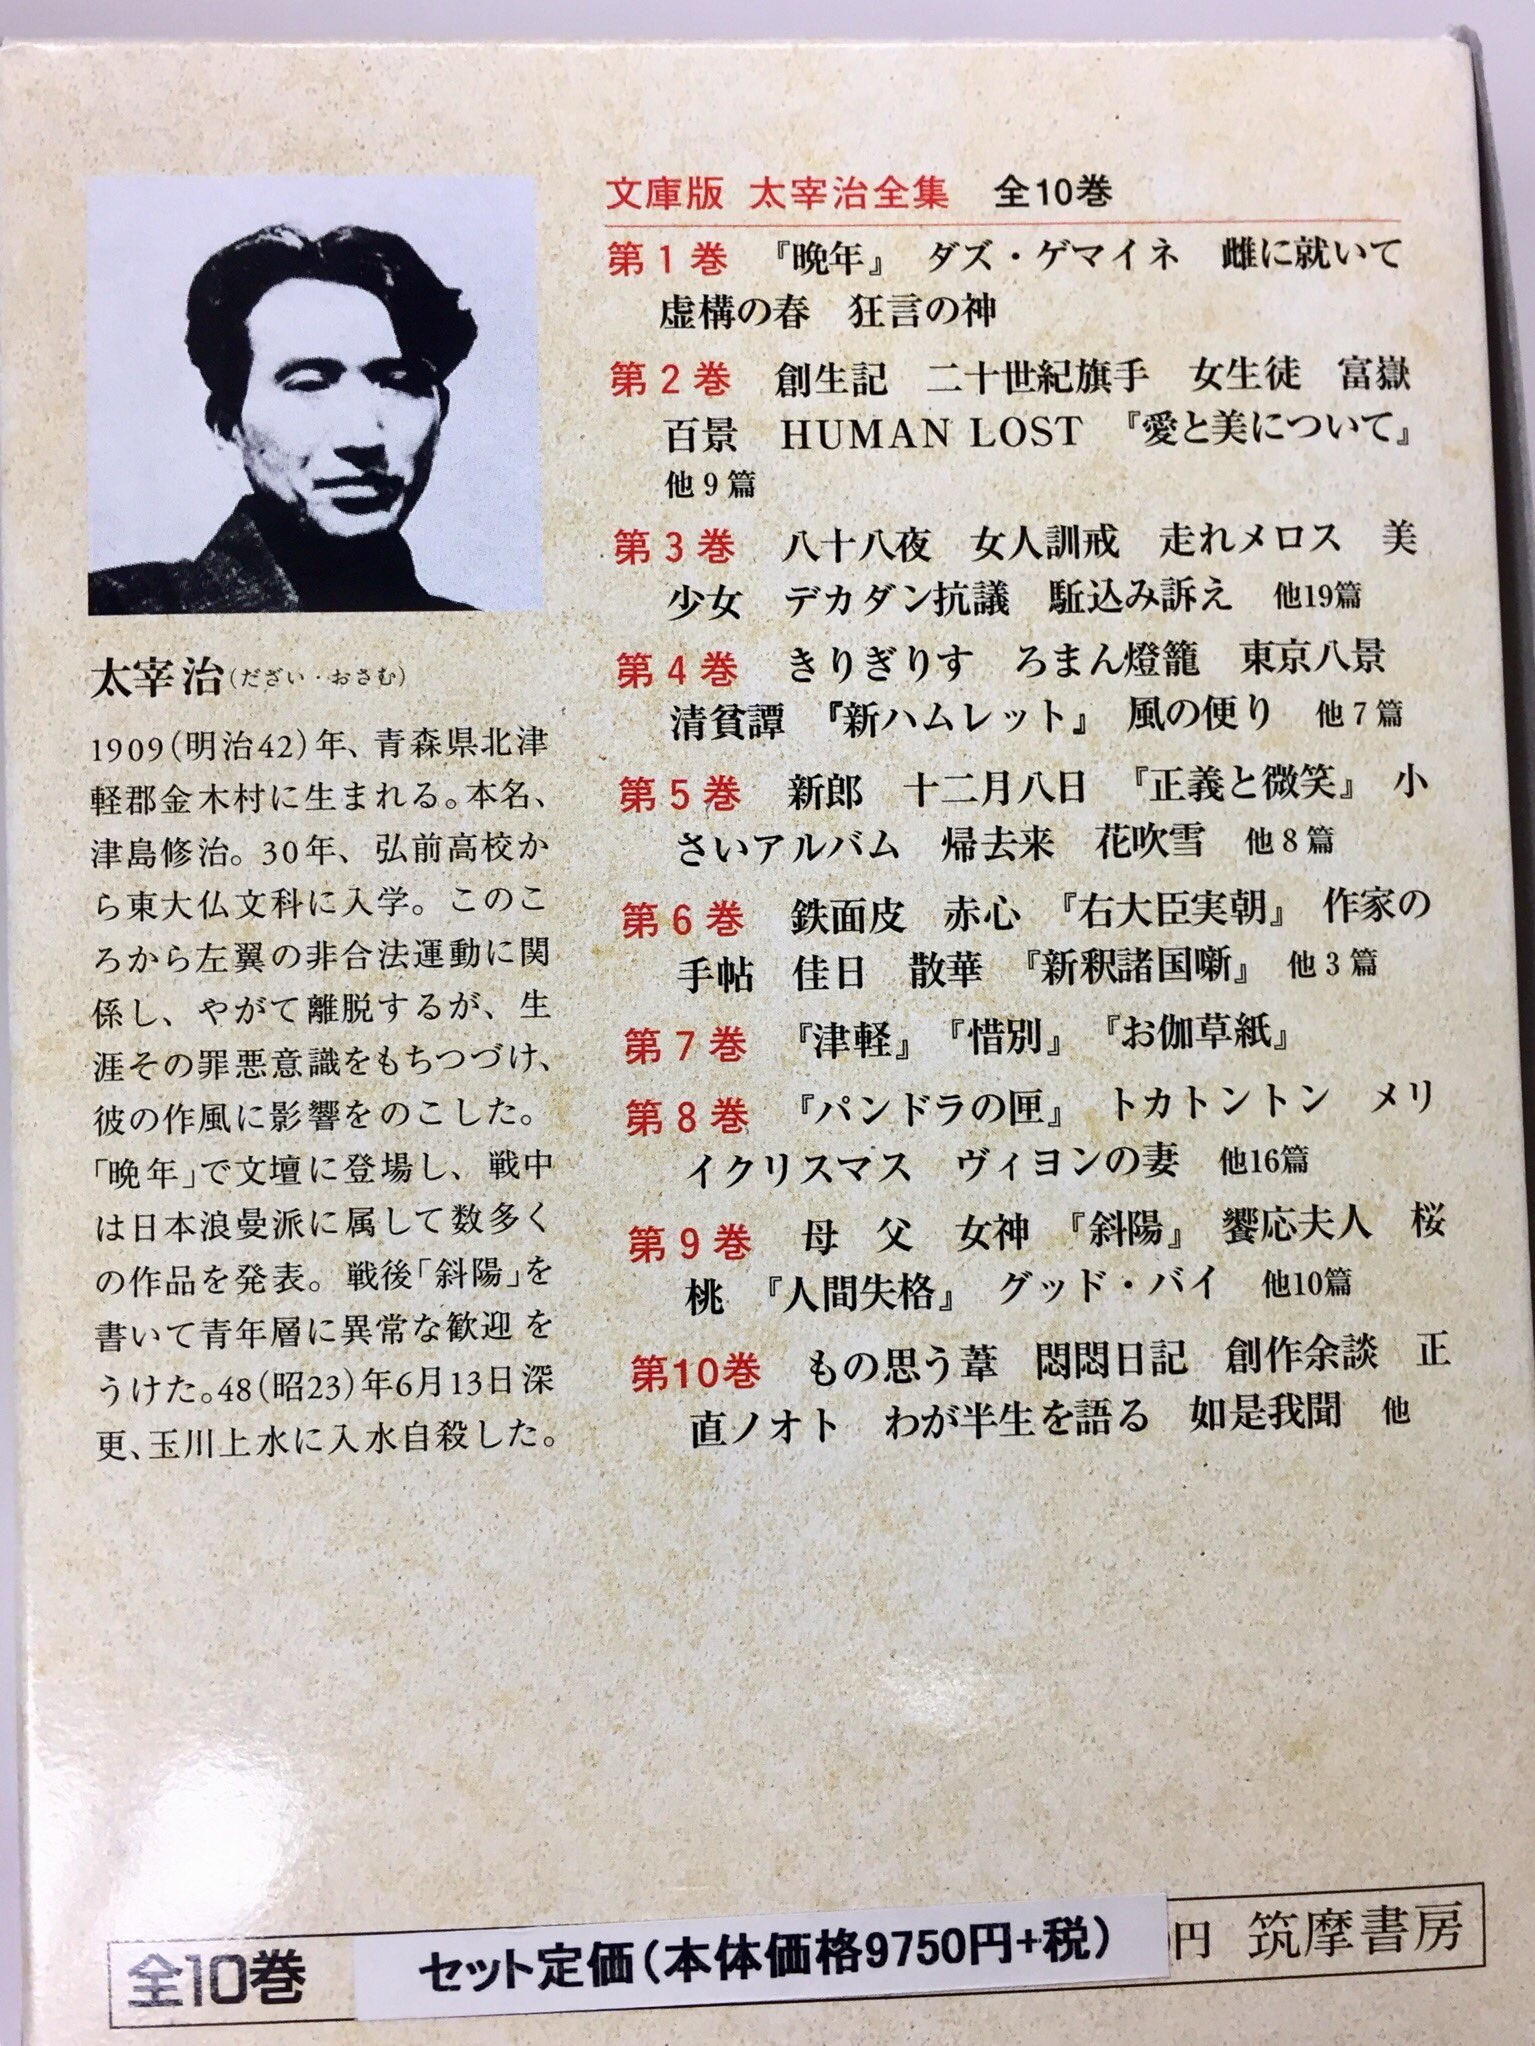 太宰治(だざい・おさむ)
1909(明治42)年、青森県北津
軽郡金木村に生まれる。本名、
津島修治。30年、弘前高校か
ら東大仏文科に入学。このこ
ろから左翼の非合法運動に関
係し、やがて離脱するが、生
涯その罪悪意識をもちつづけ、
彼の作風に影響をのこした。
「晩年」で文壇に登場し、戦中
は日本浪曼派に属して数多く
の作品を発表。戦後「斜陽」を
書いて青年層に異常な歓迎を
うけた。48(昭23)年6月13日深
更、玉川上水に入水自殺した。
文庫版 太宰治全集 全10巻
第1巻 『晩年』 ダス・ゲマイネ 雌に就いて
虚構の春 狂言の神
第2巻 創生記 二十世紀旗手 女生徒 富嶽
百景 HUMAN LOST 『愛と美について』
他9篇
第3巻 八十八夜 女人訓戒 走れメロス 美
少女 デカダン抗議 駈込み訴え 他19篇
第4巻 きりぎりす ろまん燈籠 東京八景
清貧譚 『新ハムレット』 風の便り 他7篇
第5巻 新郎 十二月八日 『正義と微笑』 小
さいアルバム 帰去来 花吹雪 他8篇
第6巻 鉄面皮 赤心 『右大臣実朝』 作家の
手帖 佳日 散華 『新釈諸国噺』 他3篇
第7巻 『津軽』『惜別』 『お伽草紙』
第8巻 『パンドラの匣』 トカトントン メリ
イクリスマス ヴィヨンの妻 他16篇
第9巻 母 父 女神 『斜陽』 饗応夫人 桜
桃 『人間失格』 グッド・バイ 他10篇
第10巻 もの思う葦 悶悶日記 創作余談 正
直ノオト わが半生を語る 如是我聞 他
全10巻 セット定価(本体価格9750円+税) 円 筑摩書房